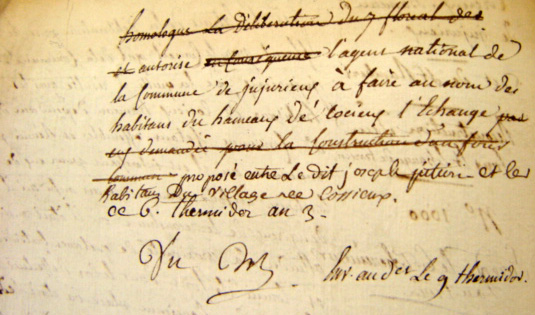 homologue La déliberation du 7 floréal des
et autorise en Conséquence l'agent national de
la Commune de jujurieux à faire au nom des
habitans du hameaux de Cocieux l'Echange par
eux demandée pour la Construction d'un four
Commun proposé entre Le dit joseph et les
habitans Du village Cossieux.
ce 6. thermidor an 3.
Vu
Le 9 thermidor.